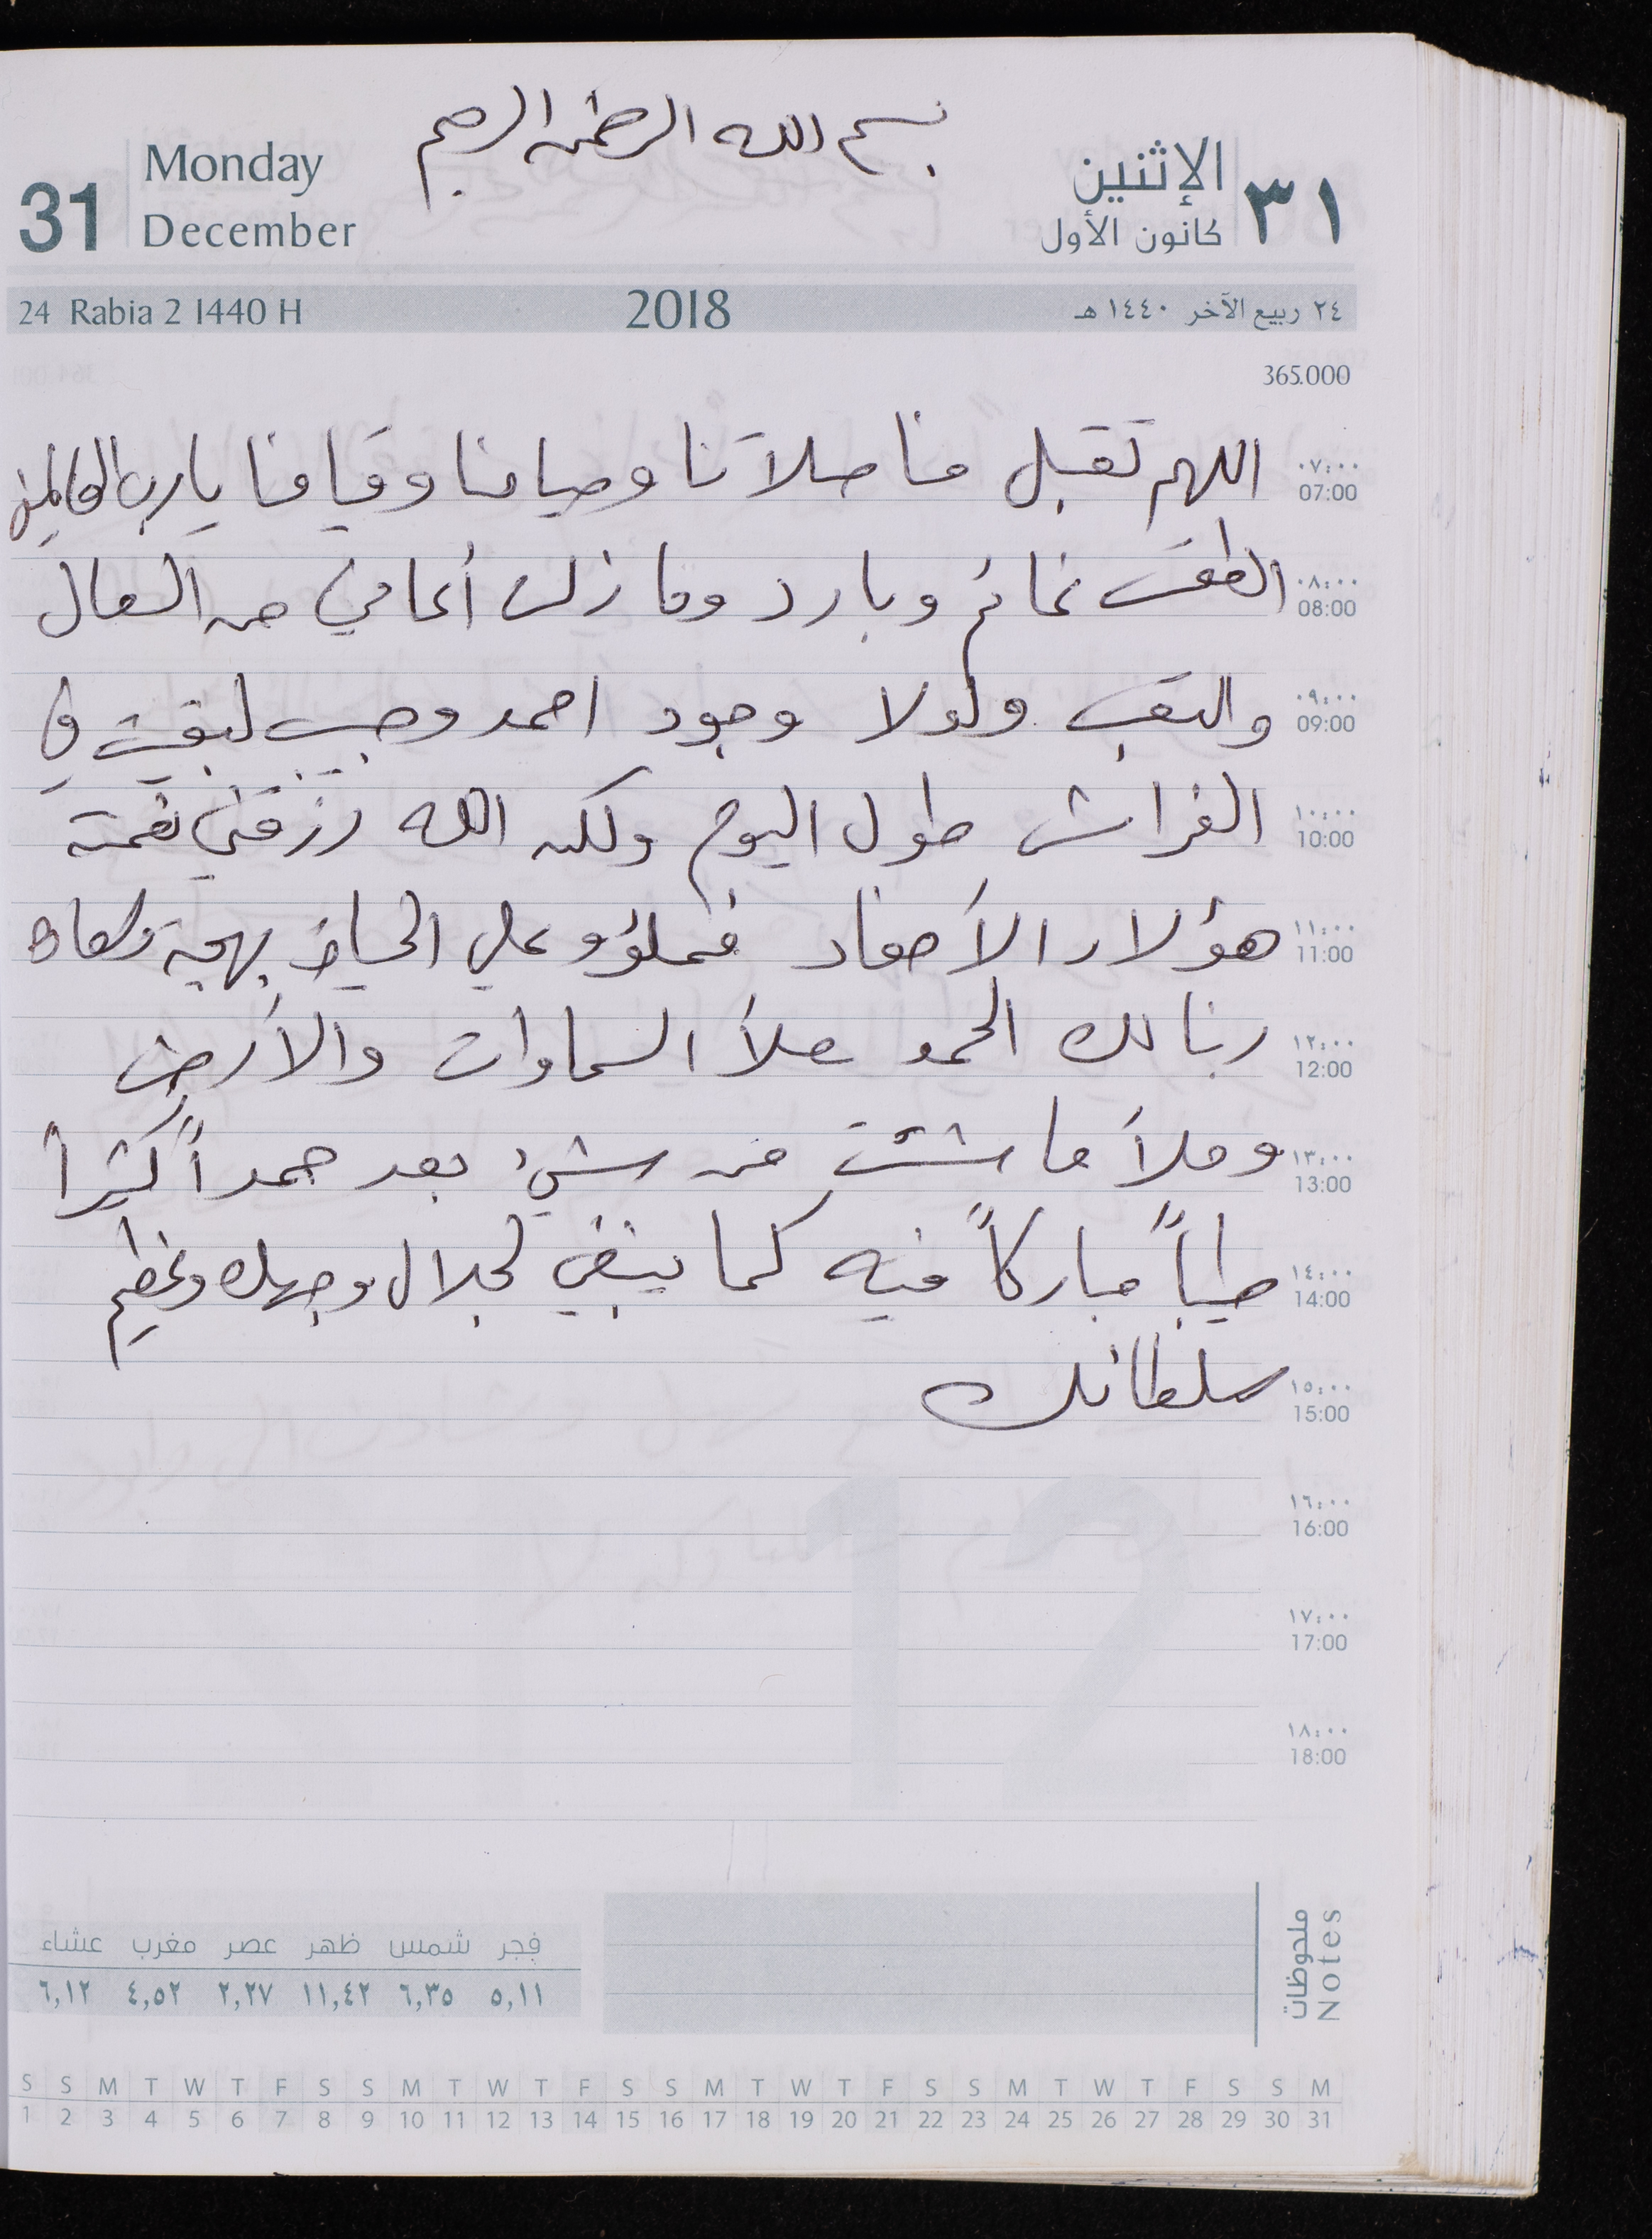 بسم الله الرحمن الرحيم
31 Monday December
الإثنين ٣١ كانون الأول
24 Rabia 2 1440 H 2018 ٢٤ ربيع الآخر ١٤٤٠ هـ
365.000
٠٧:٠٠ 07:00 اللهم تقبل منا صلاتنا وصيامنا وقيامنا يارب العالمين
٠٨:٠٠ 08:00 الطقس غائم وبارد وما زلت أعاني من السعال
٠٩:٠٠ 09:00 والتعب ولولا وجود احمد وحبيب لبقيت في
١٠:٠٠ 10:00 الفراش طول اليوم ولكن الله رزقني نعمة
١١:٠٠ 11:00 هؤلاء الأحفاد فملؤو علي الحياة بهجة وسعادة
١٢:٠٠ 12:00 ربنا لك الحمد ملأ السماوات والأرض
١٣:٠٠ 13:00 وملأ ما شئت من شيء بعد حمداً كثيراً
١٤:٠٠ 14:00 طيباً مباركاً فيه كما ينبغي لجلال وجهك وعظيم
١٥:٠٠ 15:00 سلطانك
١٦:٠٠ 16:00
١٧:٠٠ 17:00
١٨:٠٠ 18:00
12
ملحوظات Notes
فجر شمس ظهر عصر مغرب عشاء
٥,١١ ٦,٣٥ ١١,٤٢ ٢,٢٧ ٤,٥٢ ٦,١٢
S S M T W T F S S M T W T F S S M T W T F S S M T W T F S S M
1 2 3 4 5 6 7 8 9 10 11 12 13 14 15 16 17 18 19 20 21 22 23 24 25 26 27 28 29 30 31